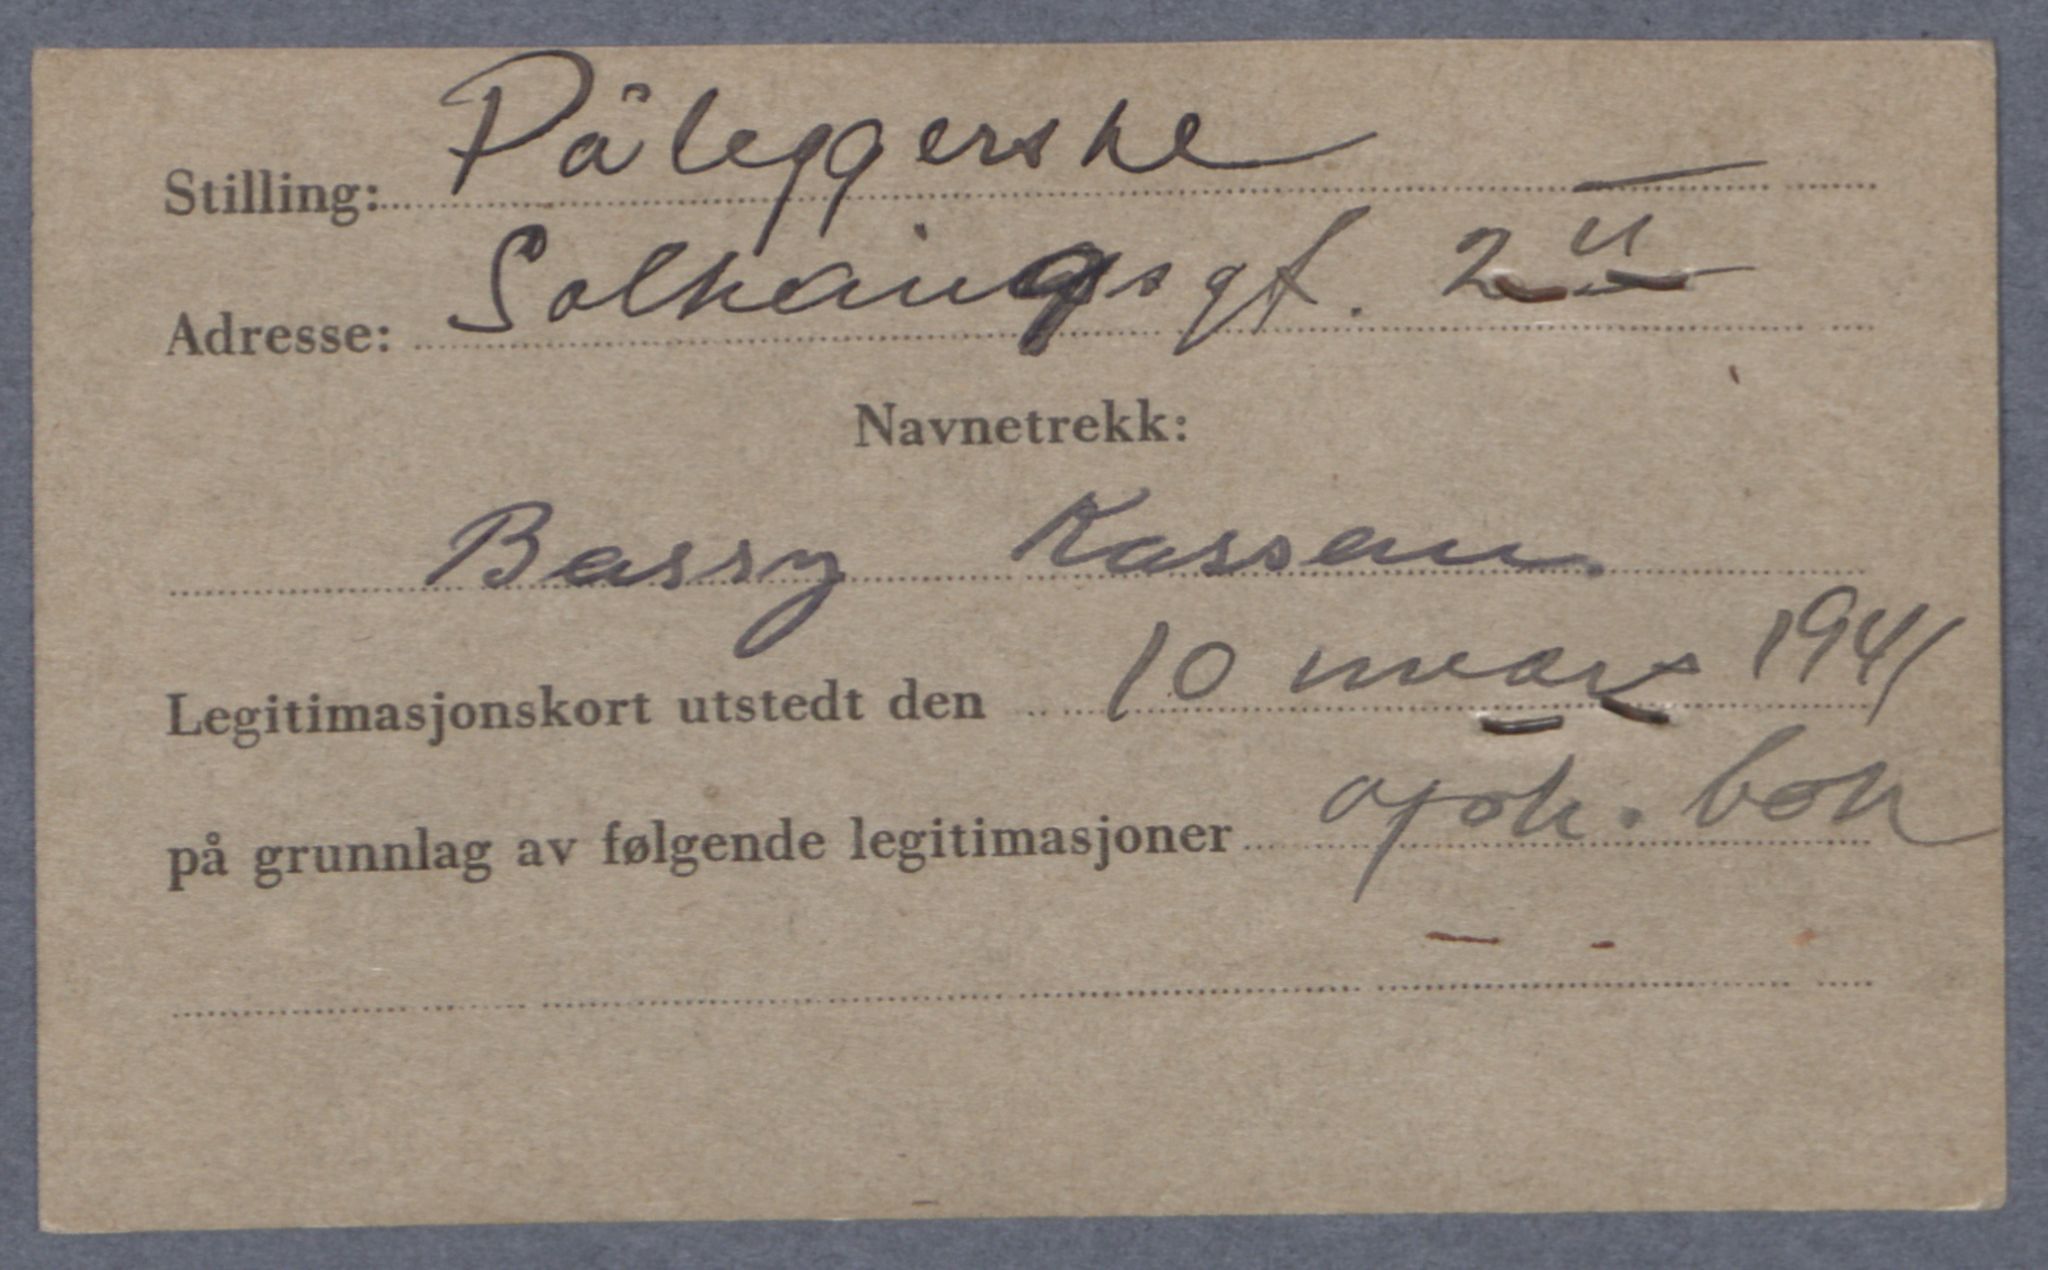 Stilling: Påleggerske
Adresse: Solhaugsgt. 2 II
Navnetrekk:
Bessy Kassan.
Legitimasjonskort utstedt den 10 mars 1941
på grunnlag av følgende legitimasjoner opph. bok